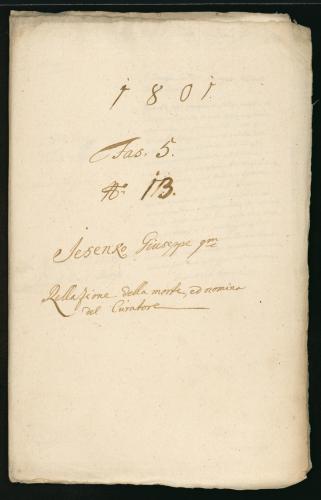 1801
Fas. 5.
No. 13.
Jesenko Giuseppe qm
Rellazione della morte, ed nomina
del Curatore